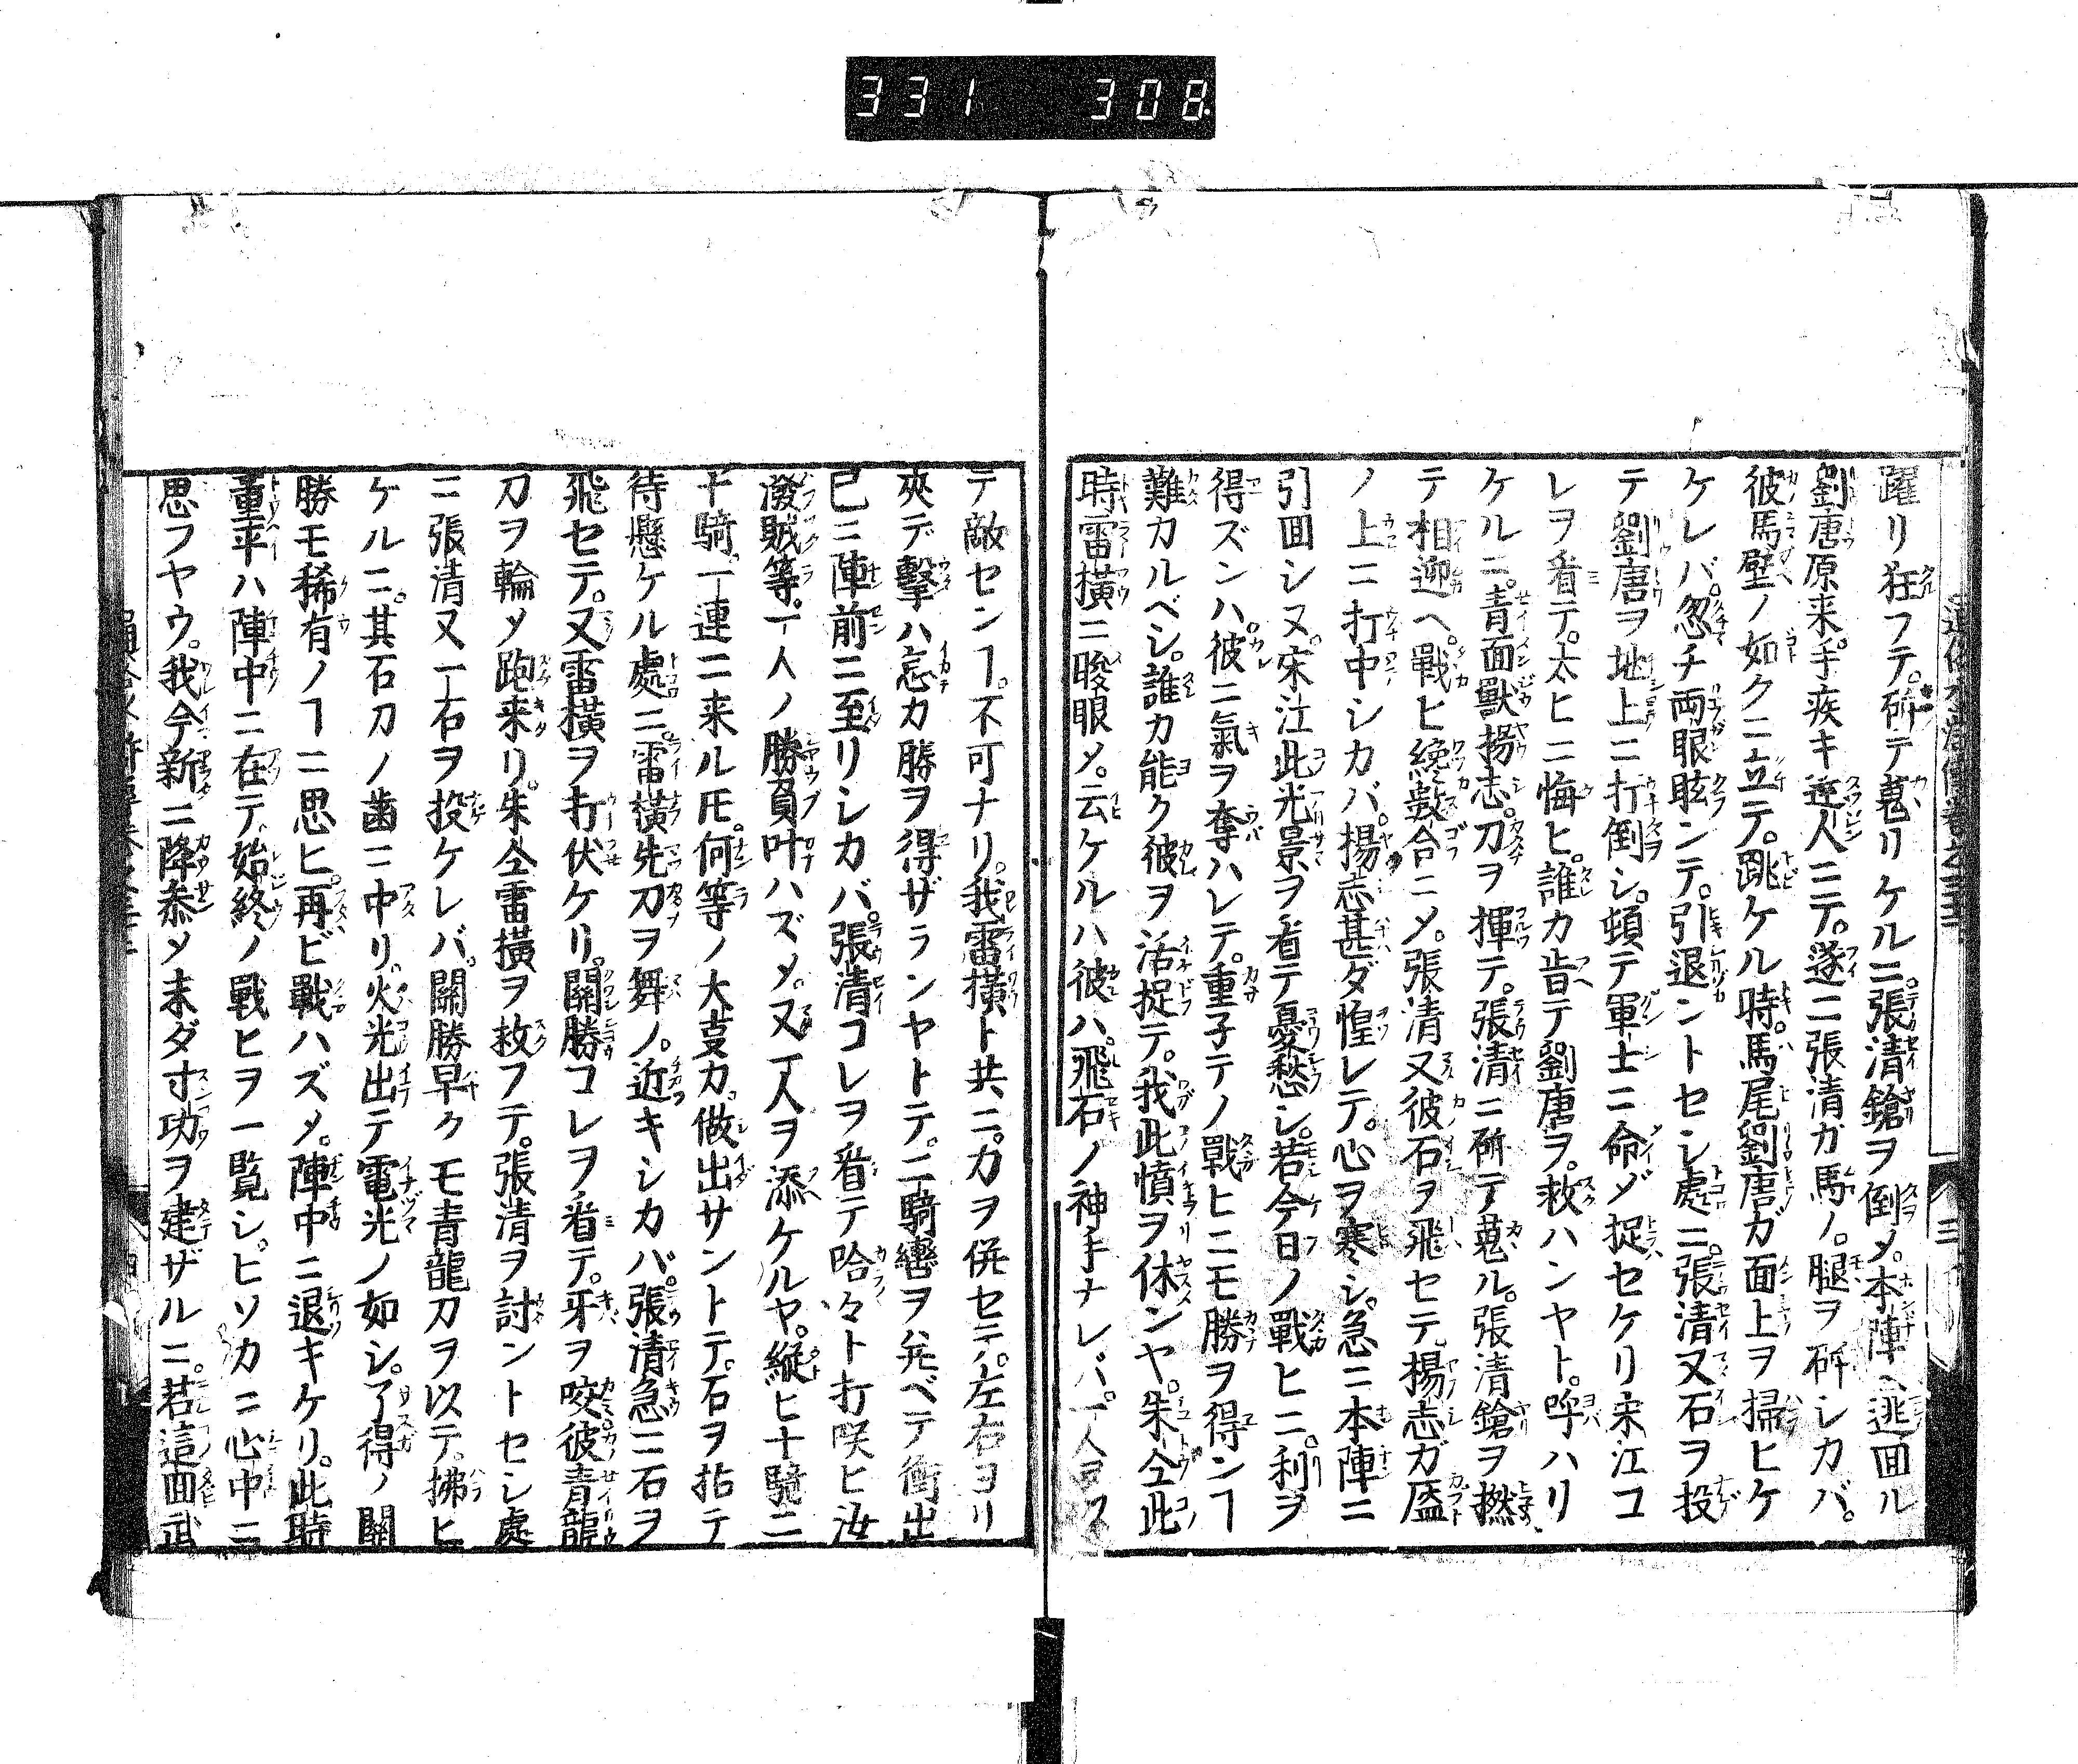 331 308
躍リ狂フテ。斫テ蒐リケルニ。張清鎗ヲ倒メ。本陣ヘ逃囬ル
劉唐原来。手疾キ逆人ニテ。遂ニ張清ガ馬ノ。腿ヲ斫シカバ。
彼馬壁ノ如クニ立テ。跳ケル時。馬尾劉唐ガ面上ヲ掃ヒケ
ケレバ。忽チ両眼眩ンテ。引退ントセシ處ニ。張清又石ヲ投
テ劉唐ヲ地上ニ打倒シ。頓テ軍士ニ命ゾ捉セケリ宋江コ
レヲ看テ。太ヒニ悔ヒ。誰カ肯テ劉唐ヲ。救ハンヤト。呼ハリ
ケルニ。青面獸揚志。刀ヲ揮テ。張清ニ斫テ蒐ル。張清鎗ヲ撚
テ相迎ヘ。戰ヒ纔數合ニメ。張清又彼石ヲ飛セテ。揚志ガ盔
ノ上ニ打中シカバ。揚志甚ダ惶レテ。心ヲ寒シ。急ニ本陣ニ
引囬シヌ。宋江此光景ヲ看テ憂愁シ。若今日ノ戰ヒニ。利ヲ
得ズンハ。彼ニ氣ヲ奪ハレテ。重子テノ戰ヒニモ勝ヲ得ンヿ
難カルベシ。誰カ能ク彼ヲ活捉テ。我此憤ヲ休ンヤ。朱仝此
時雷横ニ䀹眼メ。云ケルハ彼ハ。飛石ノ神手ナレバ。一人ヲ以
テ敵センヿ。不可ナリ。我雷横ト共ニ。力ヲ併セテ。左右ヨリ
夾デ擊ハ怎カ勝ヲ得ザランヤトテ。二騎轡ヲ並ベテ衝出
已ニ陣前ニ至リシカバ。張清コレヲ看テ哈々ト打咲ヒ汝
潑賊等。一人ノ勝負叶ハズメ。又一人ヲ添ケルヤ。縦ヒ十騎二
十騎。一連ニ来ル𪜈。何等ノ大叓カ。做出サントテ。石ヲ拈テ
待懸ケル處ニ。雷横先刀ヲ舞ノ。近キシカバ。張清急ニ石ヲ
飛セテ。又雷横ヲ打伏ケリ。關勝コレヲ看テ。牙ヲ咬彼青龍
刀ヲ輪メ跑来リ。朱仝雷横ヲ救フテ。張清ヲ討ントセシ處
ニ張清又一石ヲ投ケレバ。關勝早クモ青龍刀ヲ以テ。拂ヒ
ケルニ。其石刀ノ歯ニ中リ。火光出テ電光ノ如シ。了得ノ關
勝モ稀有ノヿニ思ヒ。再ビ戰ハズメ。陣中ニ退キケリ。此時
董平ハ陣中ニ在テ。始終ノ戰ヒヲ一覧シ。ヒソカニ心中ニ
思フヤウ。我今新ニ降叅メ未ダ寸功ヲ建ザルニ。若這囬武